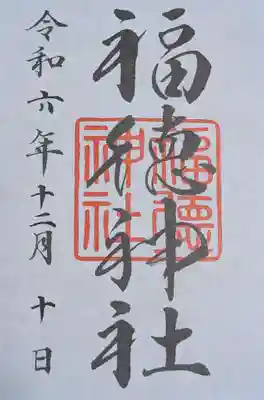 福徳神社
福徳
神社
令和六年十二月十日